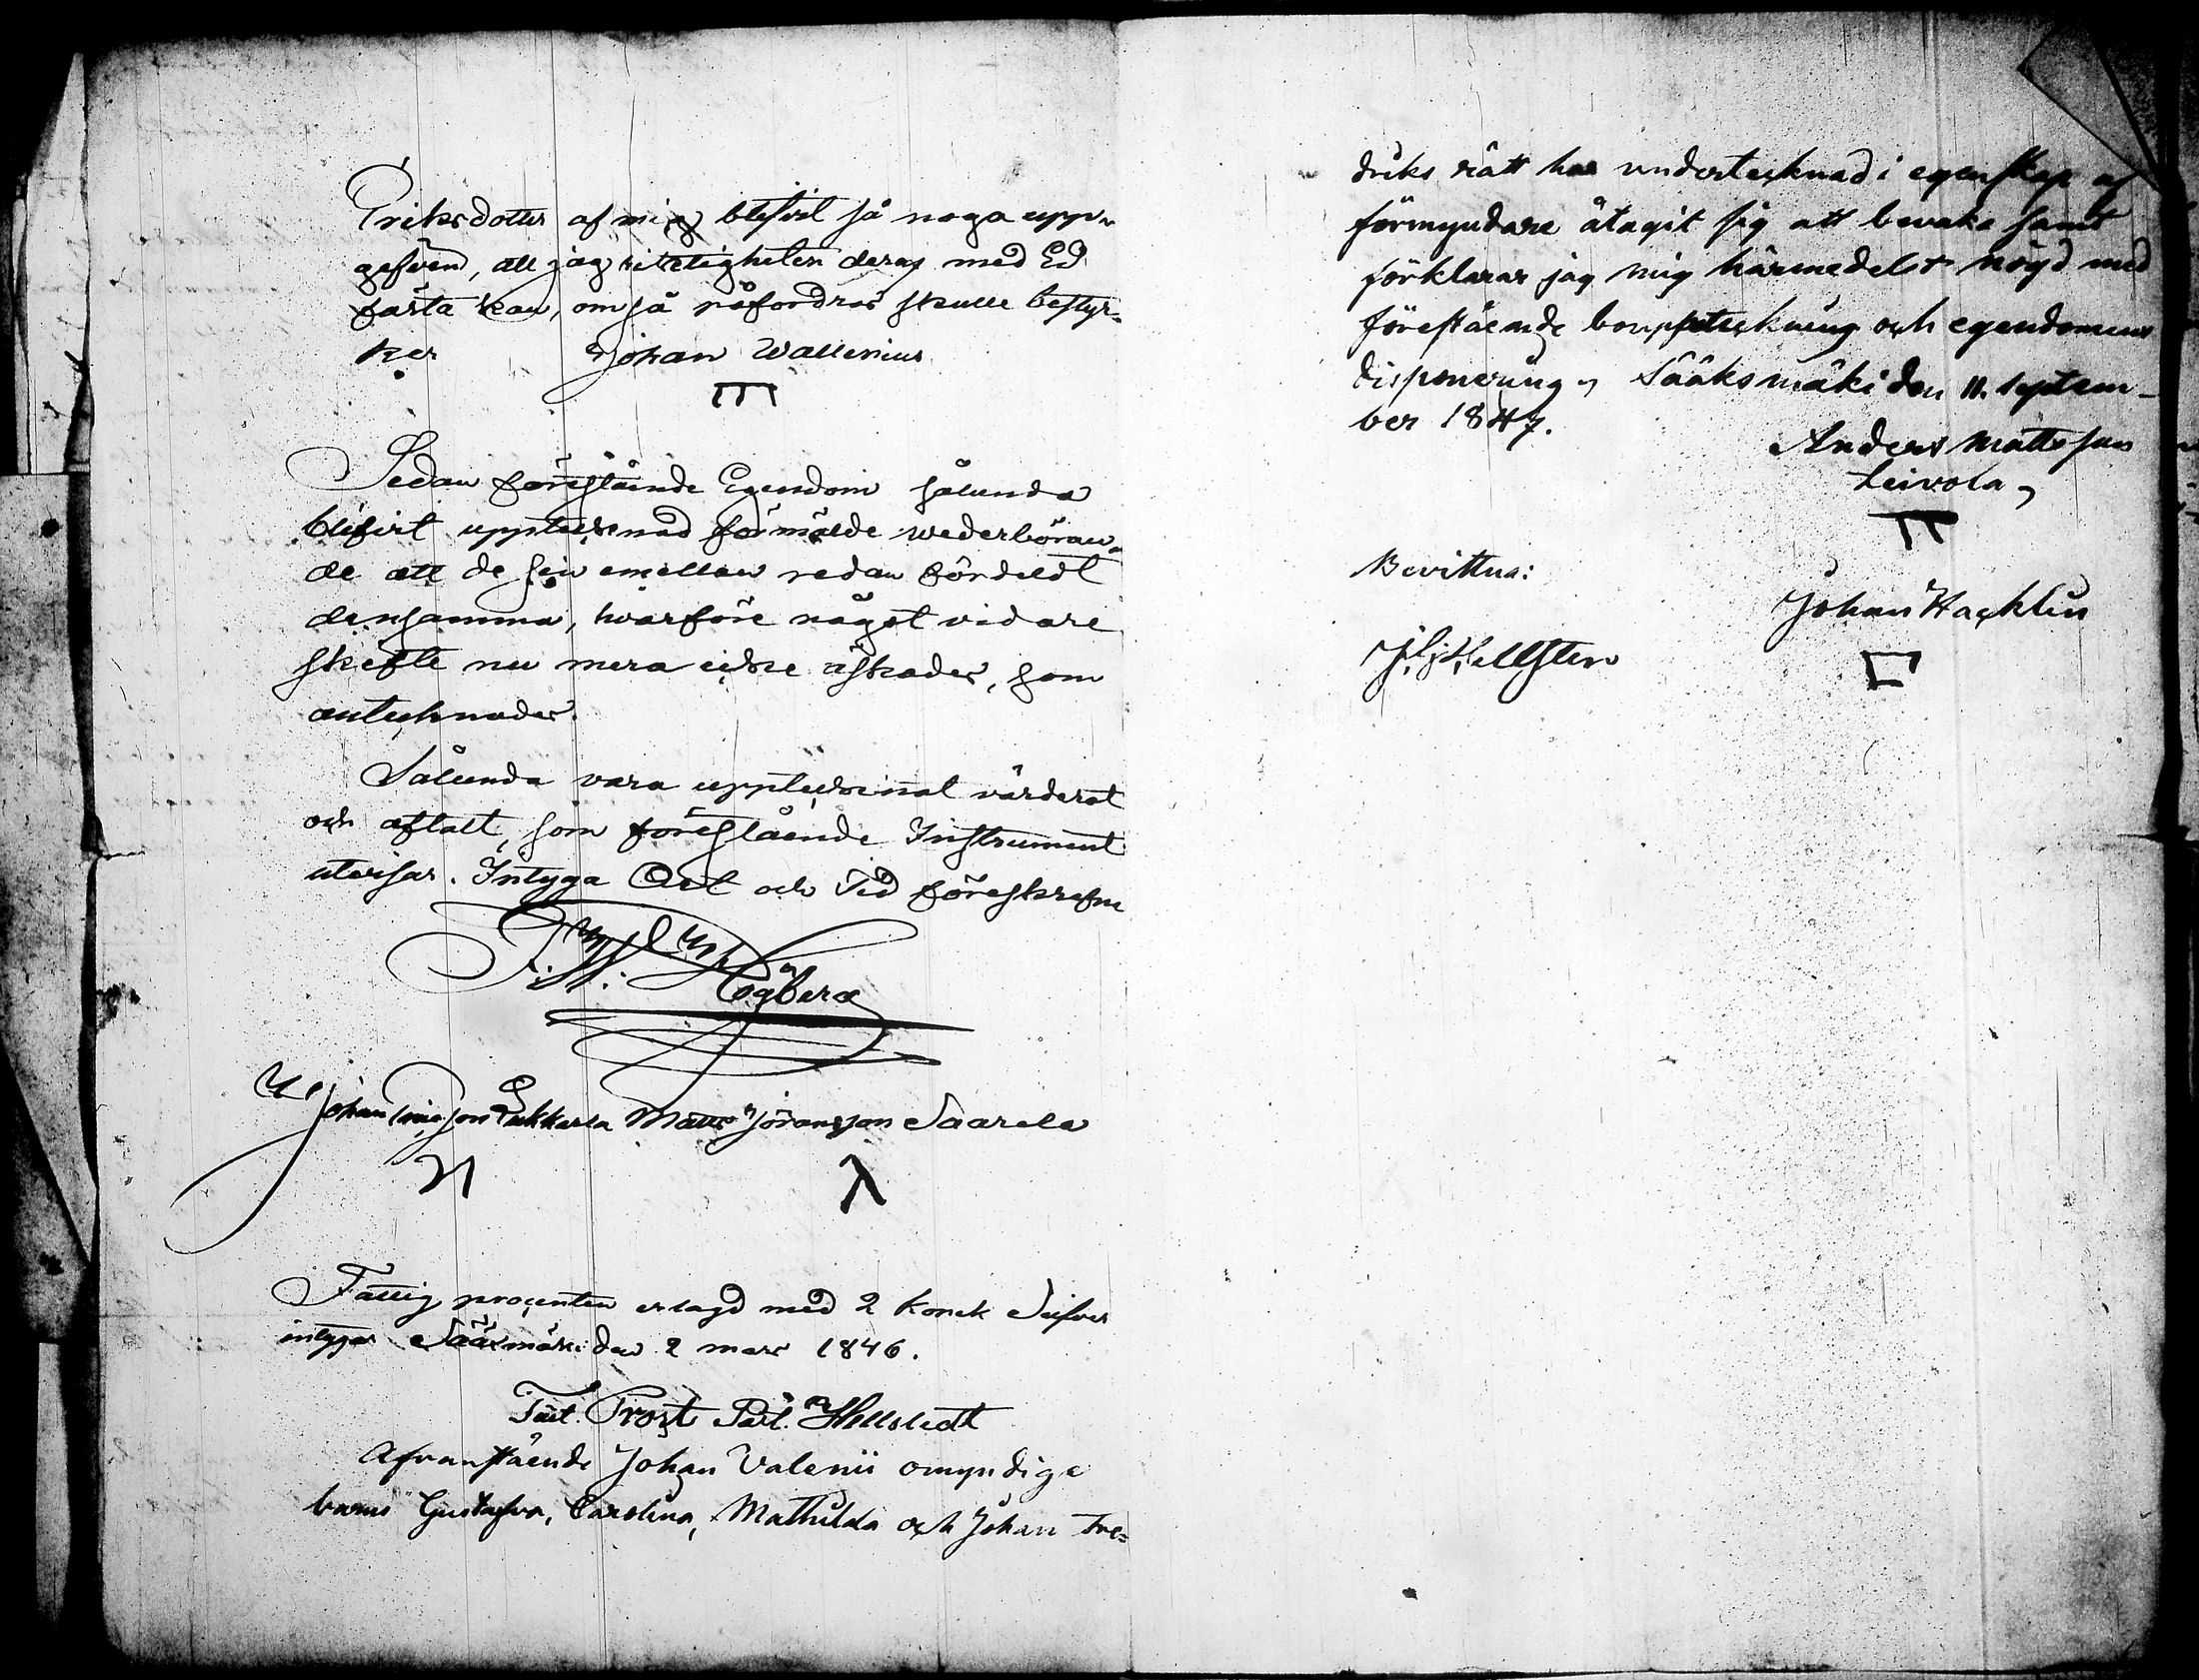 Eriksdotter af mig blifvit så noga upp-
gifven, att jag riktigheten deraf med Ed
fästa kan, om så påfordras skulle bestyr-
ker Johan Wallenius
Sedan förestående Egendom sålunda
blifvit upptecknad förmälde wederböran-
de att de sin emellan redan fördeldt
densamma, hvarföre något vidare
skifte nu mera icke äskades, som
antecknades.
Sålunda vara upptecknat värderat
och aftalt, som förestående Instrument
utvisar. Intyga Ort och Tid föreskrefne
F: W: Högberg
Johan Simonsson Matts Göransson Saarela
Fattig procenten erlagd med 2 kopek Silfver
intygar Sääxmäki den 2 mars 1846.
Frost Hellstedt
Afvanstående Johan Valenii omyndige
barns Gustafva, Carolina, Mathilda och Johan Fre-
driks rätt har undertecknad i egenskap af
förmyndare åtagit sig att bevaka samt
förklarar jag mig härmedelst nöjd med
förestående bouppteckning och egendomens
disponering, Sääksmäki den 11. Septem-
ber 1847.
Anders Mattsson
Leivola,
Bevittna:
Johan Hacklin
Hellsten